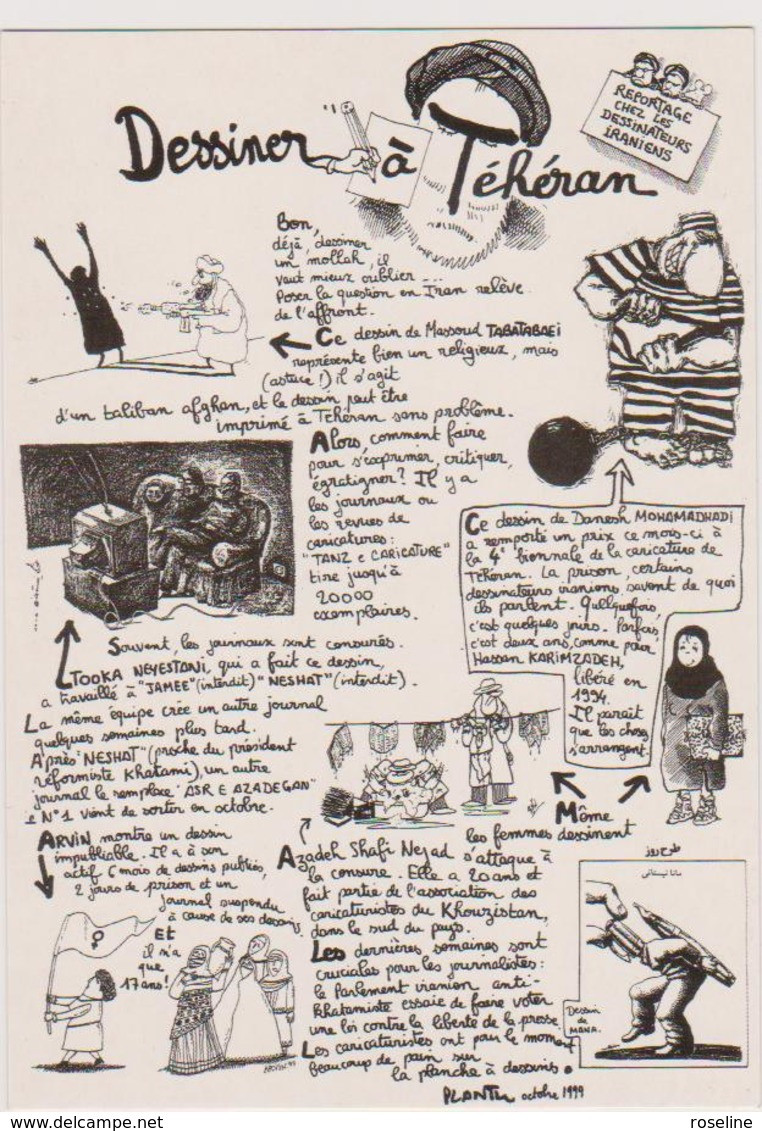 Dessiner à Téhéran
REPORTAGE
CHEZ LES
DESSINATEURS
IRANIENS
Bon,
déjà, dessiner
un mollah, il
vaut mieux oublier...
Poser la question en Iran relève
de l'affront.
Ce dessin de Massoud TABATABAEI
représente bien un religieux, mais
(astuce!) il s'agit
d'un taliban afghan, et le dessin peut être
imprimé à Téhéran sans problème.
Alors, comment faire
pour s'exprimer, critiquer,
égratigner? Il y a
les journaux ou
les revues de
caricatures:
"TANZ e CARICATURE"
tire jusqu'à
20000
exemplaires.
Ce dessin de Danesh MOHAMADHADI
a remporté un prix ce mois-ci à
la 4e biennale de la caricature de
Téhéran. La prison, certains
dessinateurs iraniens savent de quoi
ils parlent. Quelquefois,
c'est quelques jours. Parfois,
c'est deux ans, comme pour
Hassan KARIMZADEH,
libéré en
1994.
Il paraît
que les choses
s'arrangent.
Souvent, les journaux sont censurés.
TOOKA NEYESTANI, qui a fait ce dessin,
a travaillé à "JAMEE" (interdit) "NESHAT" (interdit).
La même équipe crée un autre journal
quelques semaines plus tard.
Après "NESHAT" (proche du président
réformiste Khatami), un autre
journal le remplace "ASR E AZADEGAN"
le N°1 vient de sortir en octobre.
Même
les femmes dessinent
ARVIN montre un dessin
impubliable. Il a à son
actif 6 mois de dessins publiés,
2 jours de prison et un
journal suspendu
à cause de ses dessins.
Et
il n'a
que
17 ans!
ARVIN 99
Azadeh Shafi Nejad s'attaque à
la censure. Elle a 20 ans et
fait partie de l'association des
caricaturistes du Khouzistan,
dans le sud du pays.
Les dernières semaines sont
cruciales pour les journalistes:
le Parlement iranien anti-
Khatamiste essaie de faire voter
une loi contre la liberté de la presse.
Les caricaturistes ont pour le moment
beaucoup de pain sur
la planche à dessins.
PLANTU octobre 1999
طرح روز
مانا نیستانی
Dessin
de
MANA.
delcampe.net
roseline